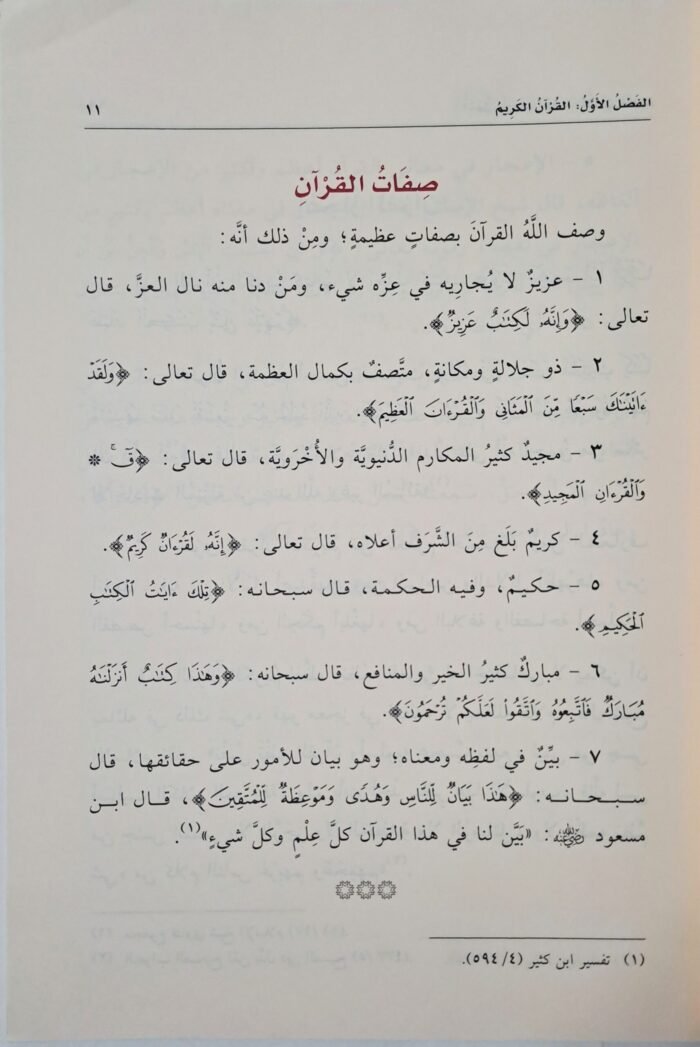 الفَصْلُ الأَوَّلُ: القُرْآنُ الكَرِيمُ ١١
صِفَاتُ القُرْآنِ
وصف اللَّهُ القرآنَ بصفاتٍ عظيمةٍ؛ ومِنْ ذلك أنَّه:
١ - عزيزٌ لا يُجاريه في عِزِّه شيء، ومَنْ دنا منه نال العزَّ، قال
تعالى: ﴿وَإِنَّهُۥ لَكِتَٰبٌ عَزِيزٌ﴾.
٢ - ذو جلالةٍ ومكانةٍ، متَّصفٌ بكمال العظمة، قال تعالى: ﴿وَلَقَدۡ
ءَاتَيۡنَٰكَ سَبۡعٗا مِّنَ ٱلۡمَثَانِي وَٱلۡقُرۡءَانَ ٱلۡعَظِيمَ﴾.
٣ - مجيدٌ كثيرُ المكارم الدُّنيويَّة والأُخْرَويَّة، قال تعالى: ﴿قٓۚ *
وَٱلۡقُرۡءَانِ ٱلۡمَجِيدِ﴾.
٤ - كريمٌ بَلَغ مِنَ الشَّرَف أعلاه، قال تعالى: ﴿إِنَّهُۥ لَقُرۡءَانٞ كَرِيمٞ﴾.
٥ - حكيمٌ، وفيه الحكمة، قال سبحانه: ﴿تِلۡكَ ءَايَٰتُ ٱلۡكِتَٰبِ
ٱلۡحَكِيمِ﴾.
٦ - مباركٌ كثيرُ الخير والمنافع، قال سبحانه: ﴿وَهَٰذَا كِتَٰبٌ أَنزَلۡنَٰهُ
مُبَارَكٞ فَٱتَّبِعُوهُ وَٱتَّقُواْ لَعَلَّكُمۡ تُرۡحَمُونَ﴾.
٧ - بيِّنٌ في لفظه ومعناه؛ وهو بيان للأمور على حقائقها، قال
سبحانه: ﴿هَٰذَا بَيَانٞ لِّلنَّاسِ وَهُدٗى وَمَوۡعِظَةٞ لِّلۡمُتَّقِينَ﴾، قال ابن
مسعود رضي الله عنه: «بَيَّن لنا في هذا القرآن كلَّ عِلْمٍ وكلَّ شيءٍ»(١).
(١) تفسير ابن كثير (٤/ ٥٩٤).